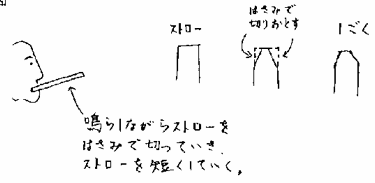 ストロー
はさみで
切りおとす
1ごく
鳴らしながらストローを
はさみで切っていき、
ストローを短くしていく。